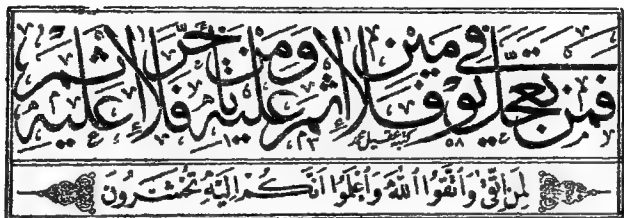 فَمَنْ تَعَجَّلَ فِي يَوْمَيْنِ فَلَا إِثْمَ عَلَيْهِ وَمَنْ تَأَخَّرَ فَلَا إِثْمَ عَلَيْهِ
لِمَنِ اتَّقَىٰ وَاتَّقُوا اللهَ وَاعْلَمُوا أَنَّكُمْ إِلَيْهِ تُحْشَرُونَ